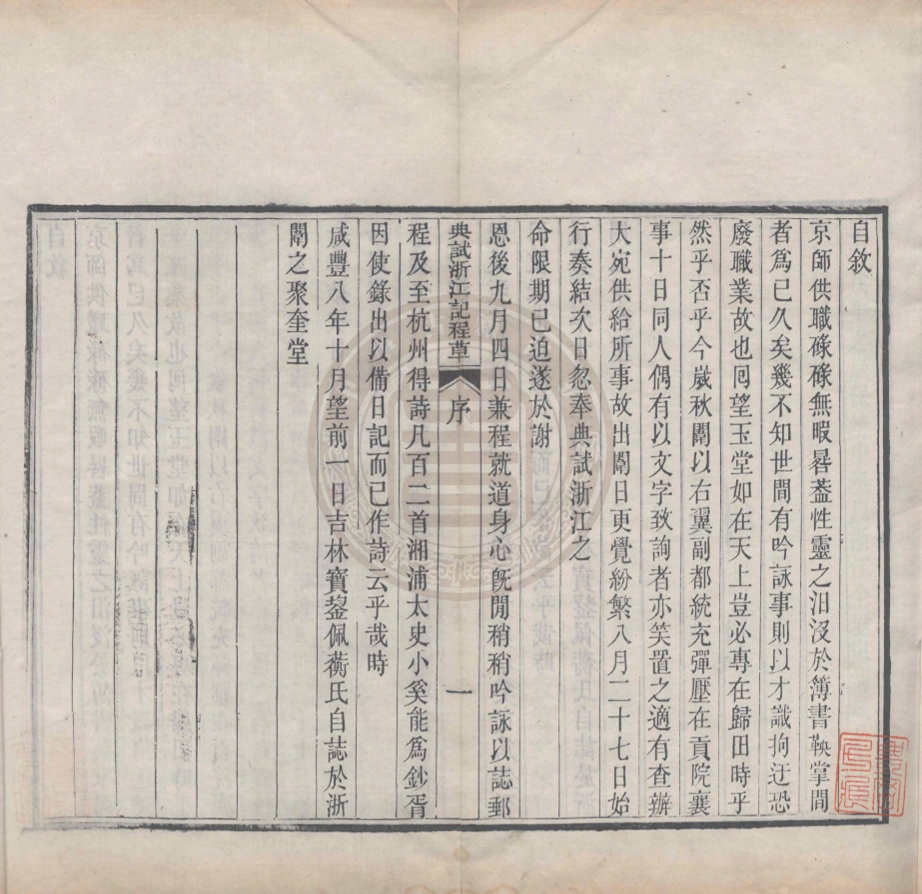 自敘
京師供職碌碌無暇晷葢性靈之汨沒於簿書鞅掌間
者為已久矣幾不知世間有吟詠事則以才識拘迂恐
廢職業故也囘望玉堂如在天上豈必專在歸田時乎
然乎否乎今歲秋闈以右翼副都統充彈壓在貢院襄
事十日同人偶有以文字致詢者亦笑置之適有查辦
大宛供給所事故出闈日更覺紛繁八月二十七日始
行奏結次日忽奉典試浙江之
命限期已迫遂於謝
恩後九月四日兼程就道身心旣閒稍稍吟詠以誌郵
典試浙江記程草 序 一
程及至杭州得詩凡百二首湘浦太史小奚能為鈔胥
因使錄出以備日記而已作詩云乎哉時
咸豐八年十月望前一日吉林寶鋆佩蘅氏自誌於浙
闈之聚奎堂